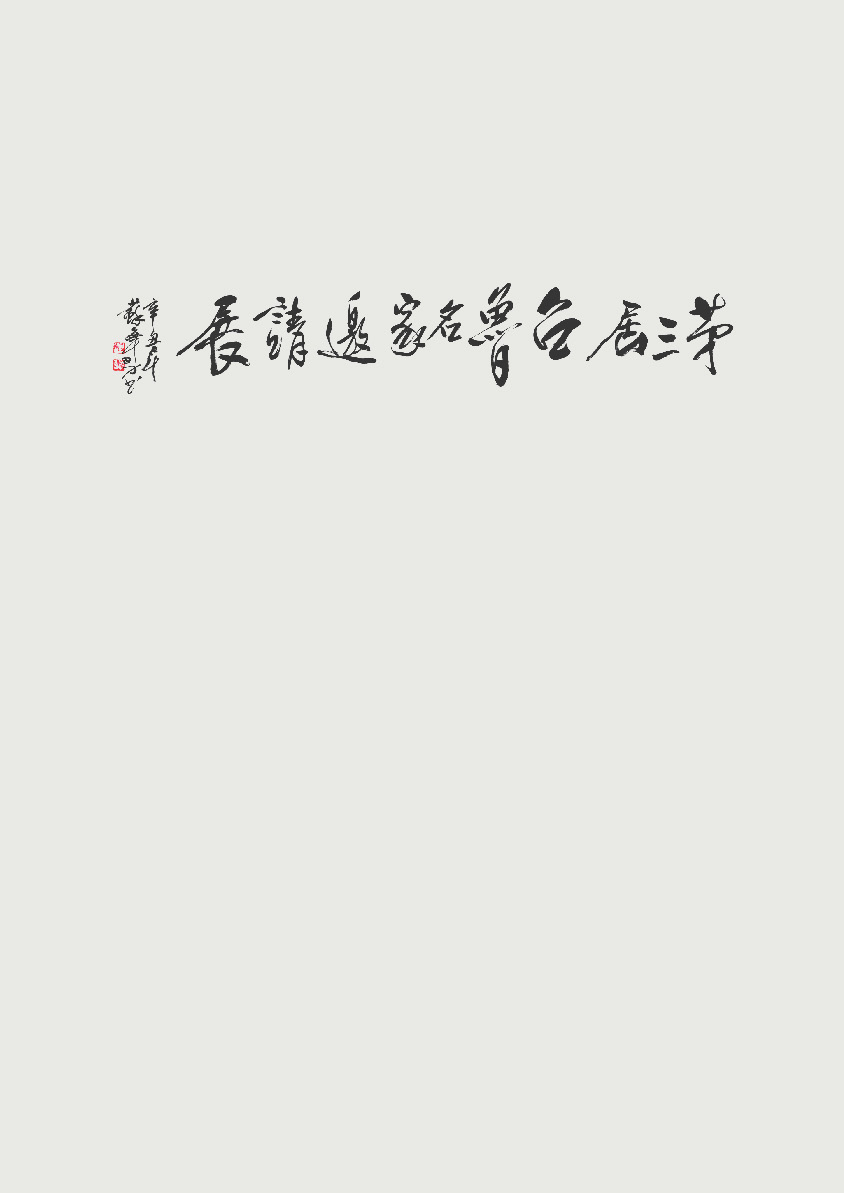 第三屆台魯名家邀請展
辛丑年
蘇峯男書